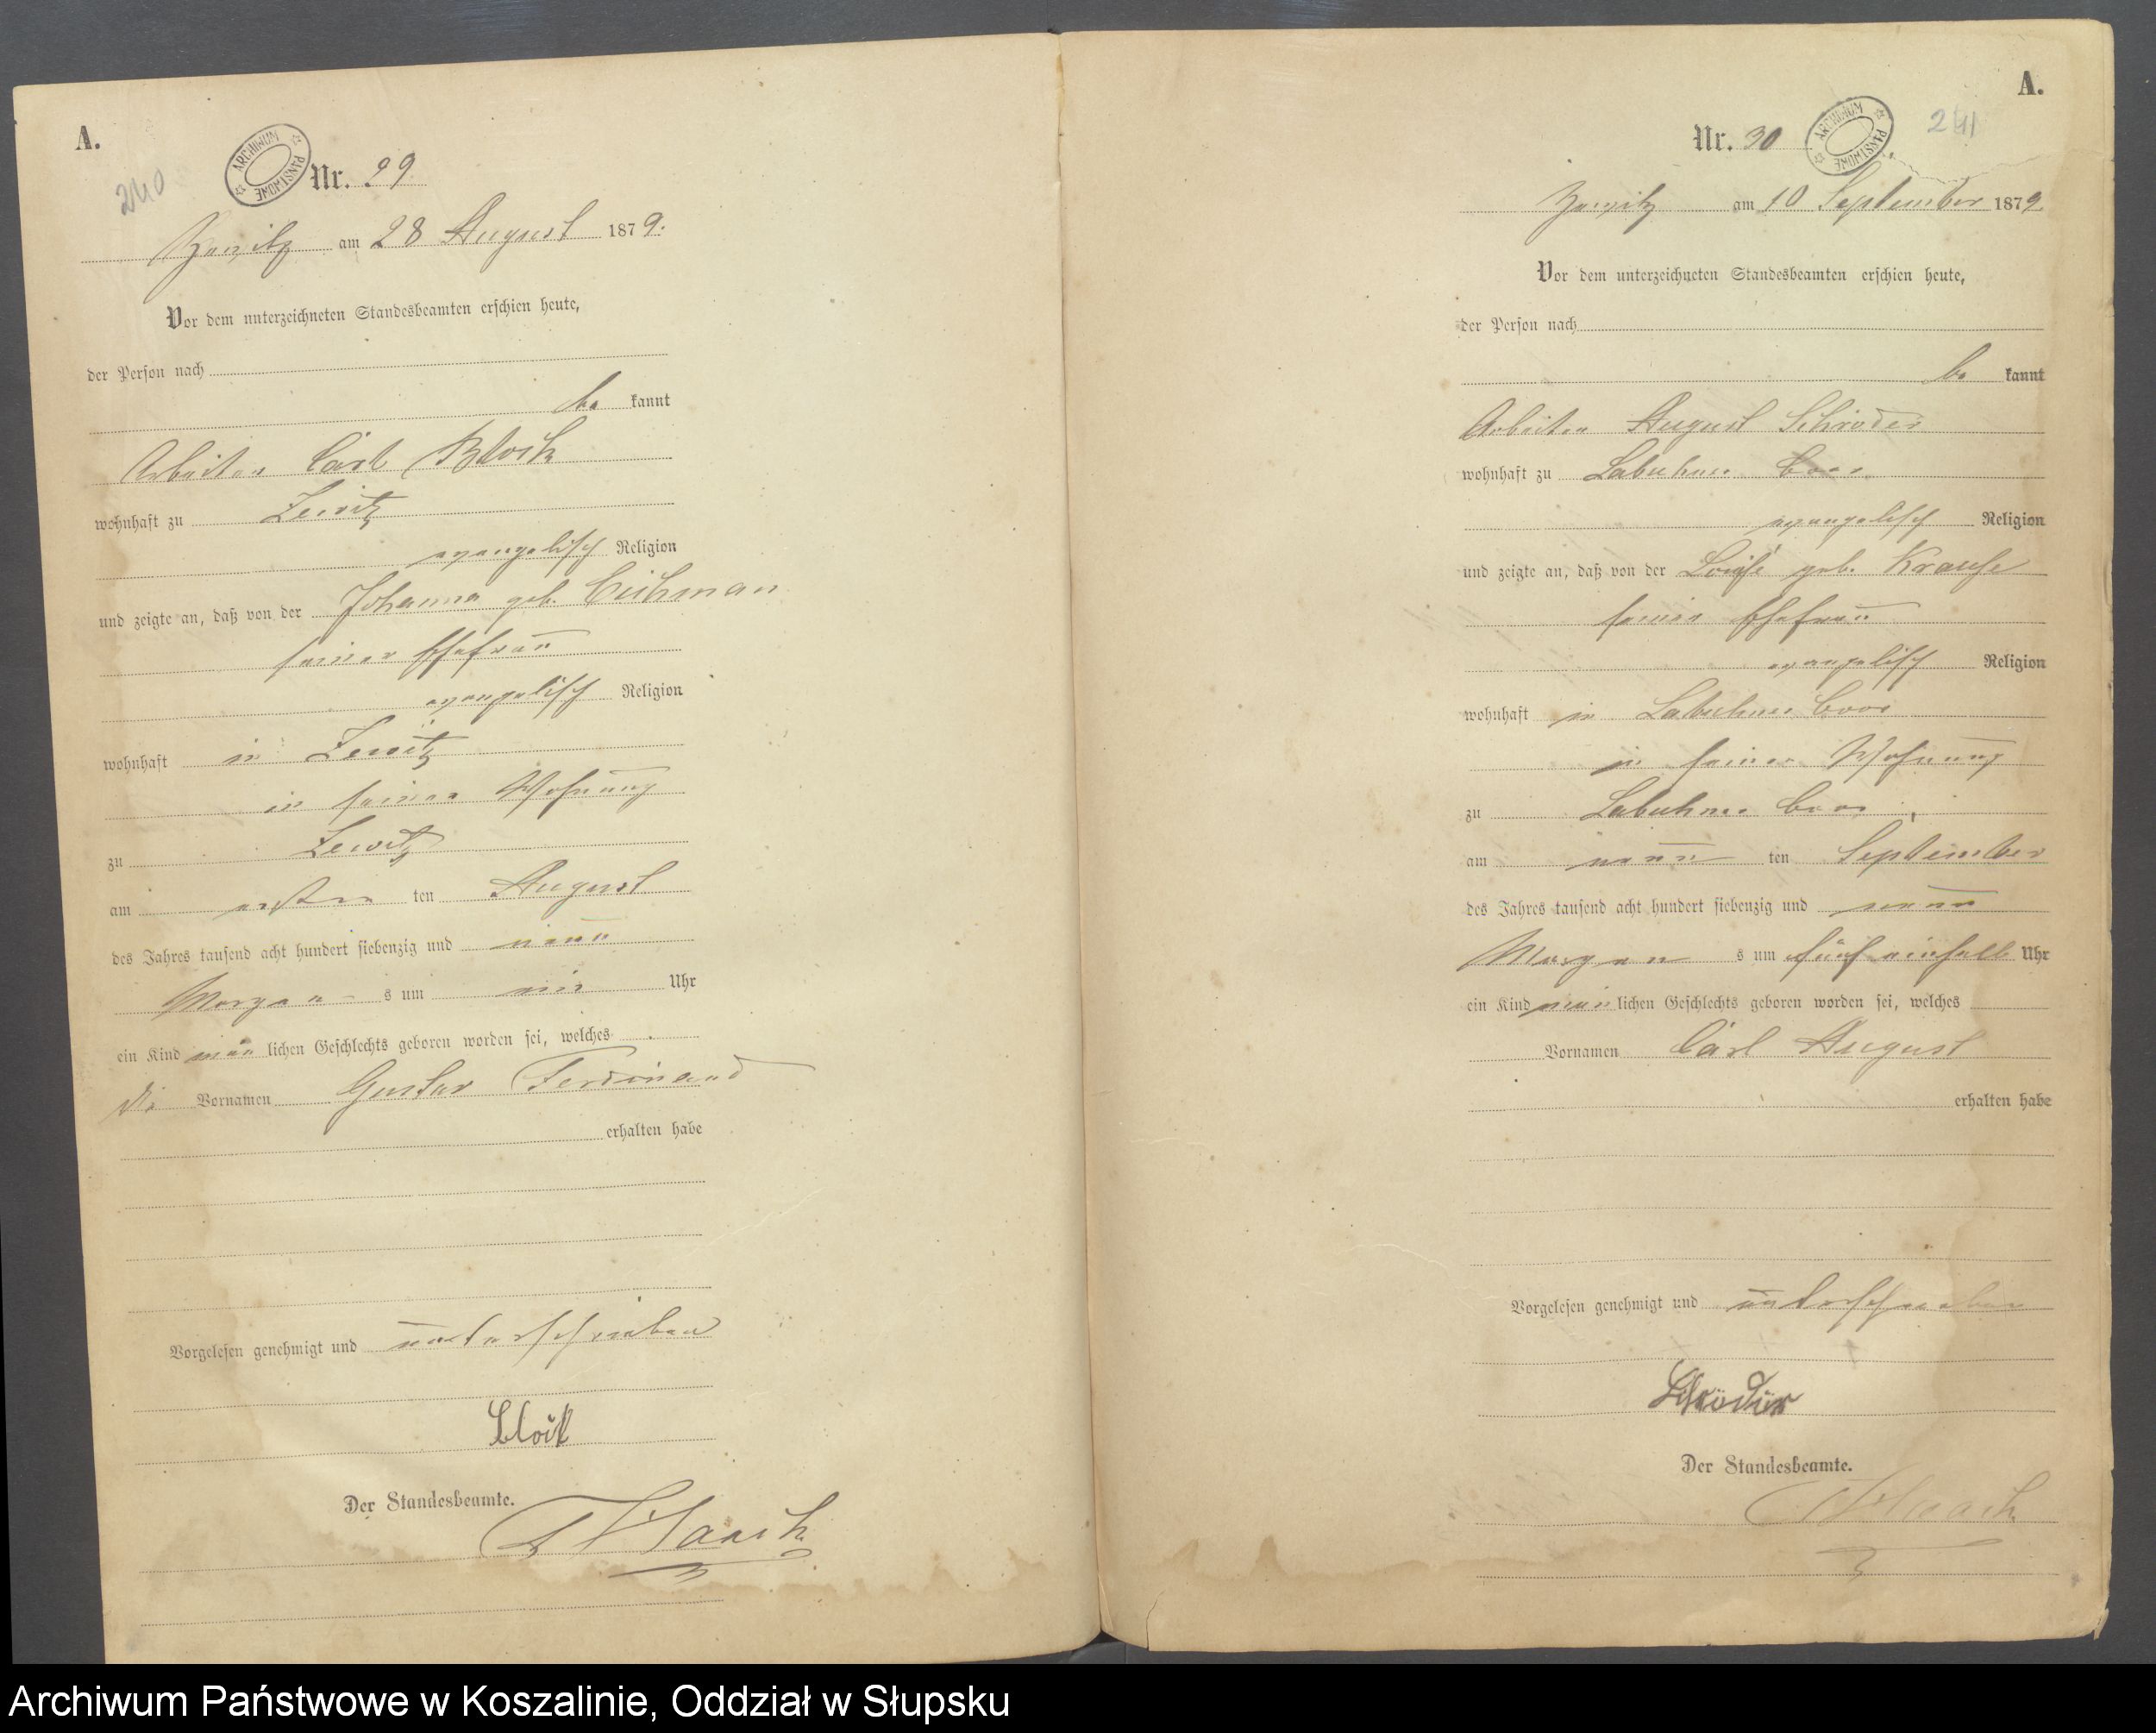 A.
240
ARCHIWUM PAŃSTWOWE
Nr. 29
am 28 August 1879.
Vor dem unterzeichneten Standesbeamten erschien heute,
der Person nach
be kannt
Arbeiter Carl Block
wohnhaft zu Zewitz
evangelisch Religion
und zeigte an, daß von der Johanna geb.
seiner Ehefrau
evangelisch Religion
wohnhaft in Zewitz
in seiner Wohnung
zu Zewitz
am ersten ten August
des Jahres tausend acht hundert siebenzig und neun
Morgen s um Uhr
ein Kind män lichen Geschlechts geboren worden sei, welches
die Vornamen Gustav Ferdinand
erhalten habe
Vorgelesen genehmigt und unterschrieben
Block
Der Standesbeamte.
A.
241
Nr. 30
ARCHIWUM PAŃSTWOWE
am 10 September 1879.
Vor dem unterzeichneten Standesbeamten erschien heute,
der Person nach
be kannt
Arbeiter August Schröder
wohnhaft zu Labuhner
evangelisch Religion
und zeigte an, daß von der Louise geb. Krause
seiner Ehefrau
evangelisch Religion
wohnhaft in Labuhner
in seiner Wohnung
zu Labuhner
am neun ten September
des Jahres tausend acht hundert siebenzig und neun
Morgen s um fünf einhalb Uhr
ein Kind män lichen Geschlechts geboren worden sei, welches
Vornamen Carl August
erhalten habe
Vorgelesen genehmigt und unterschrieben
Schröder
Der Standesbeamte.
Archiwum Państwowe w Koszalinie, Oddział w Słupsku